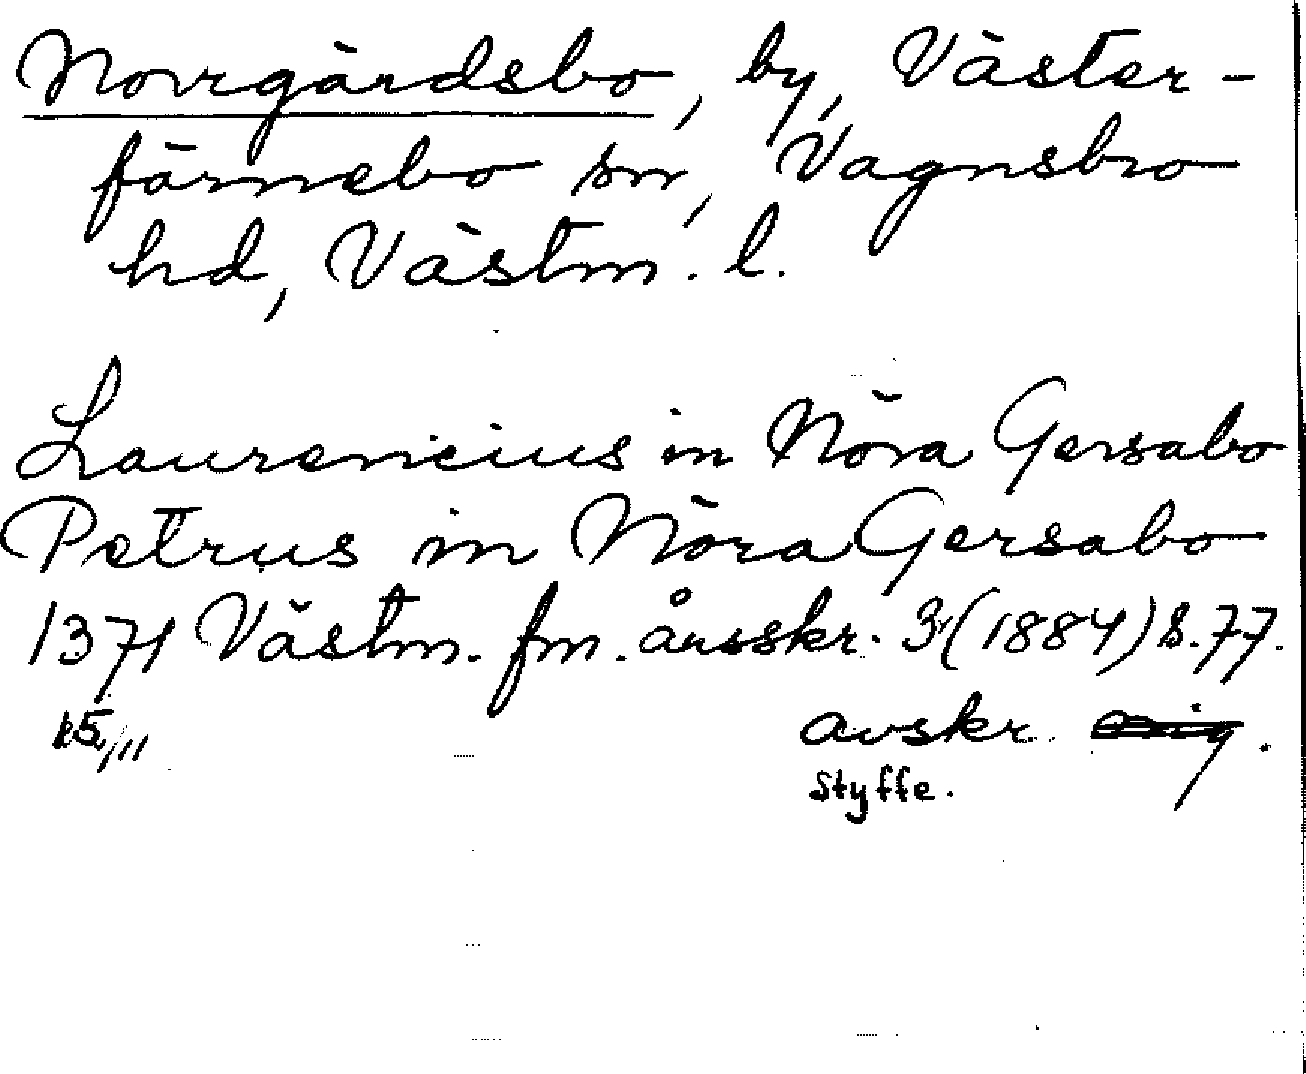 Norrgärdsbo, by, Väster-
färnebo sn, Vagnsbro
hd, Västm. l.
Laurencius in Nöra Gersabo
Petrus in Nöra Gersabo
1371 Västm. fm. årsskr. 3 (1884) s. 77.
avskr.
Styffe.